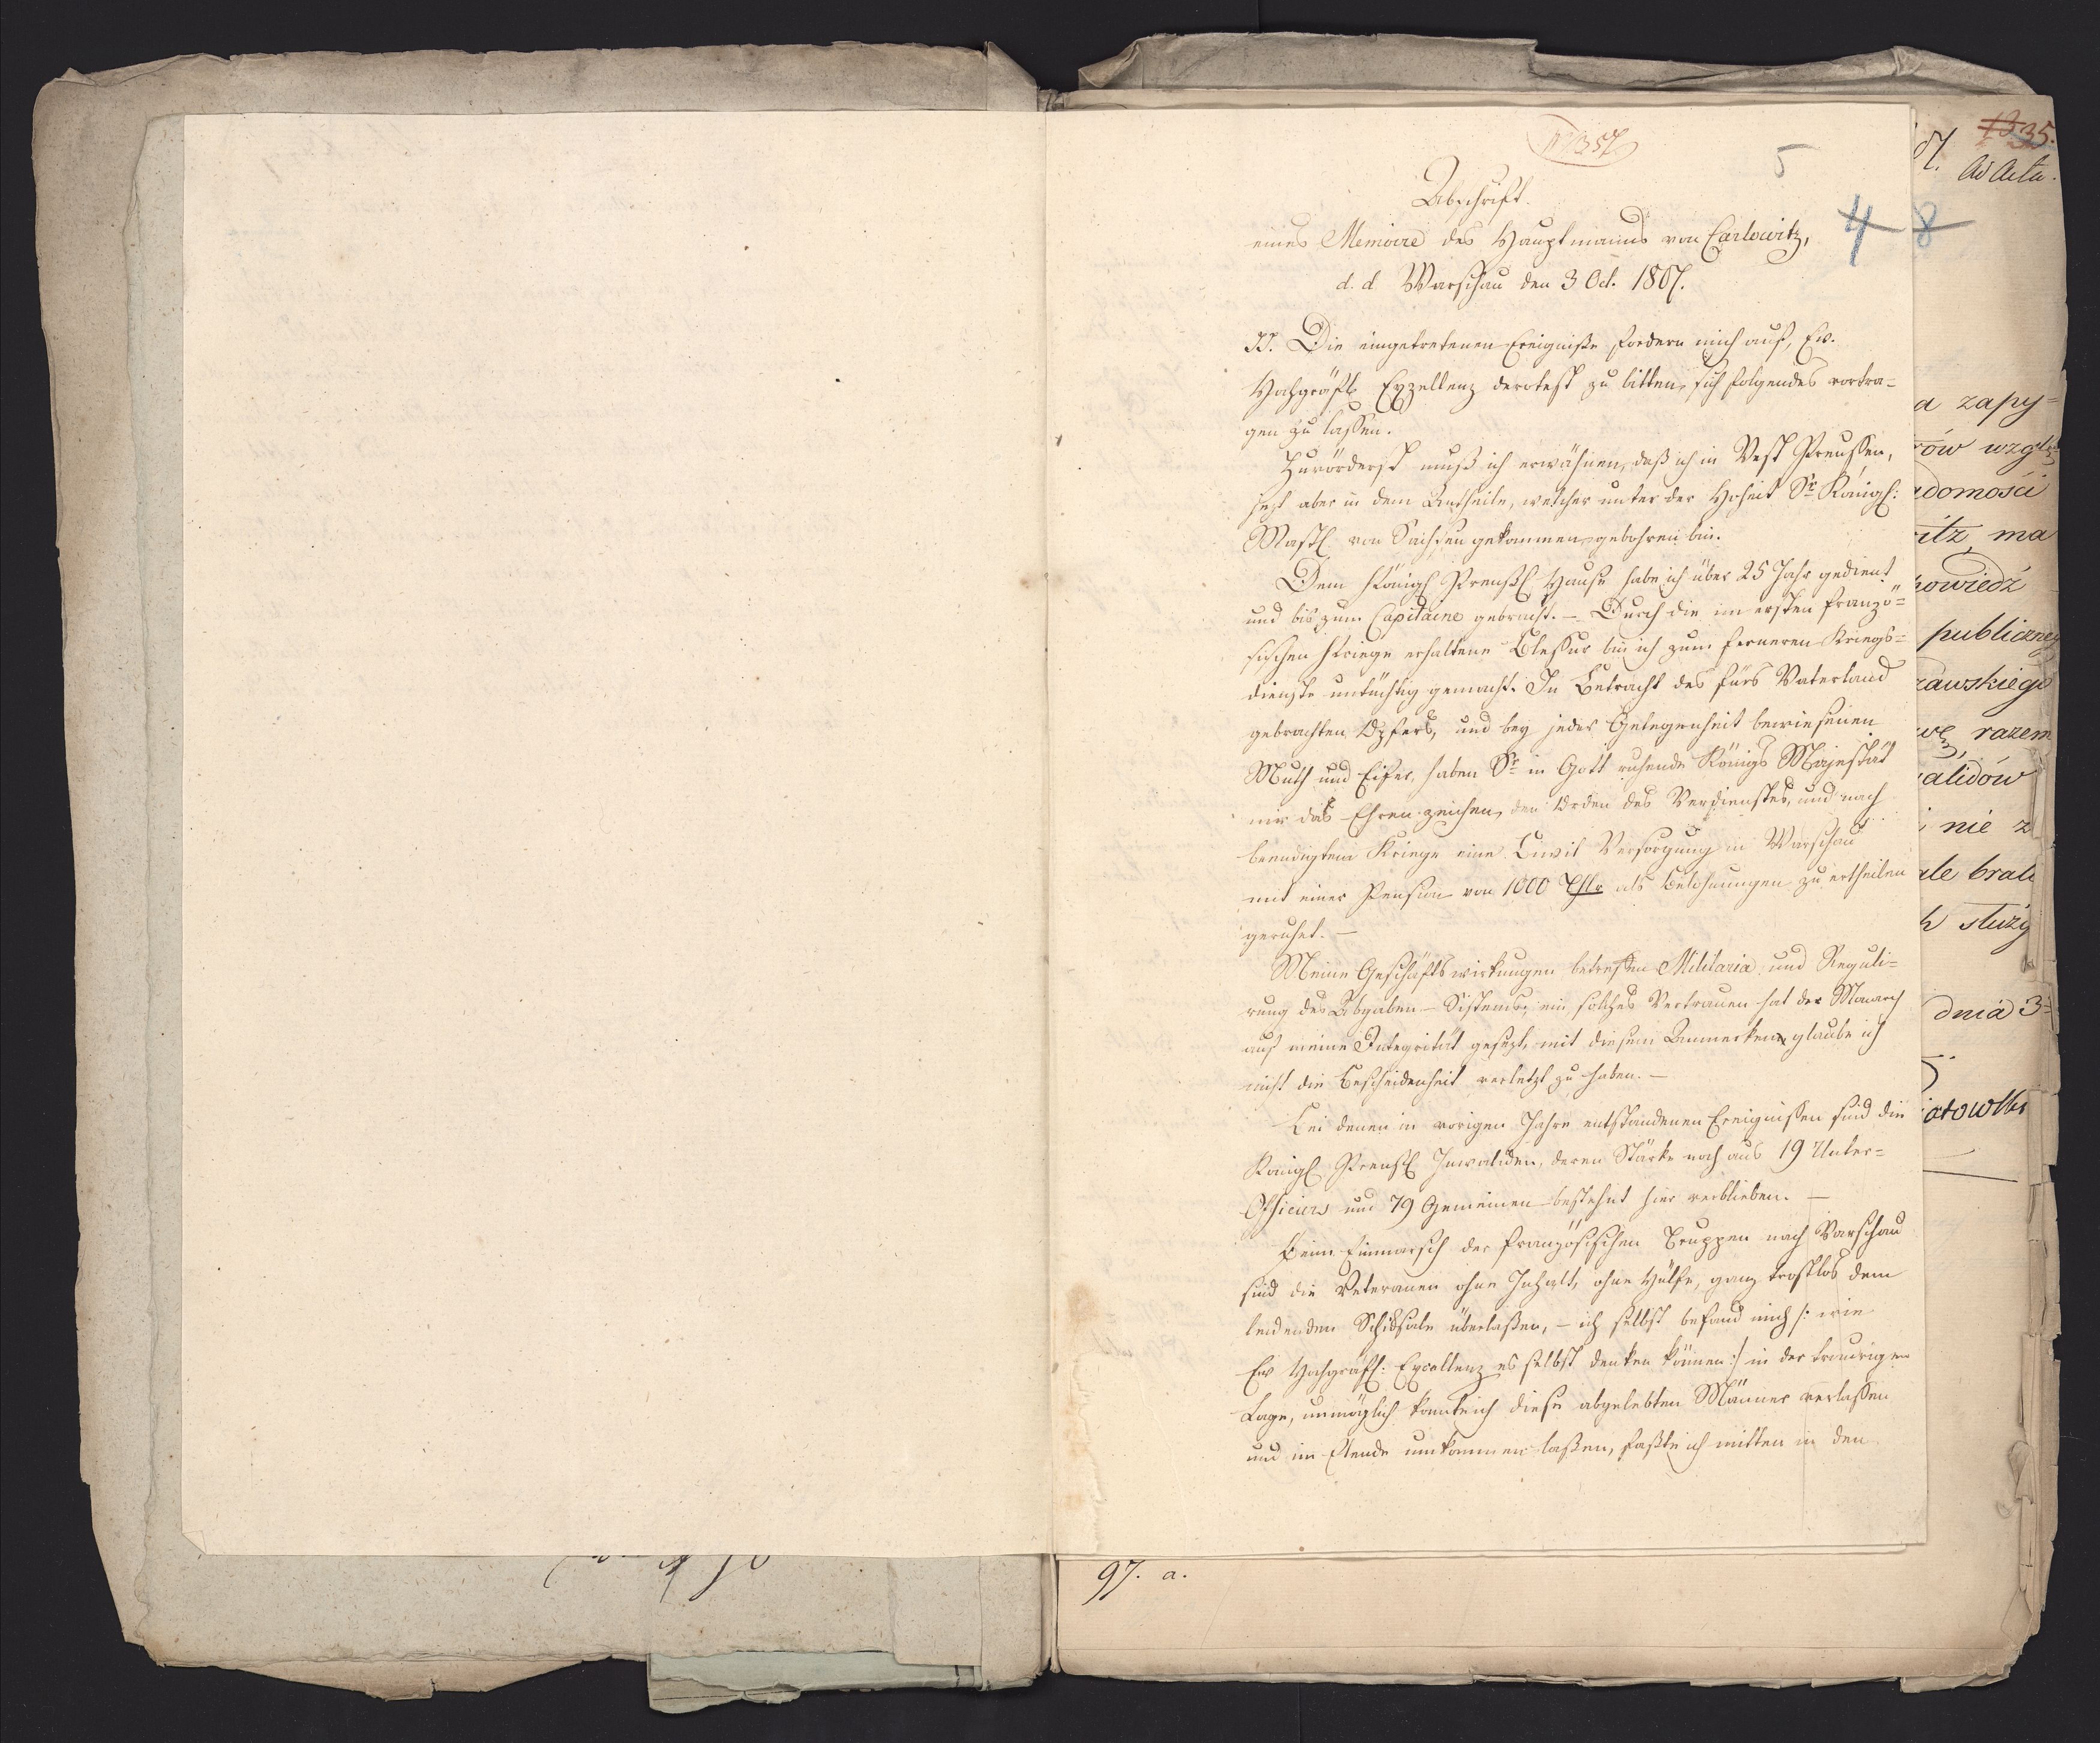 5
4 8
Abschrift.
eines Memoire des Hauptmanns von Carlowitz,
d. d. Warschau den 3 Oct. 1807.
Die eingetretenen Ereigniße fordern mich auf, Ew.
Hochgräfl. Exzellenz devotest zu bitten, sich folgendes vortra-
gen zu laßen.
Zuvörderst muß ich erwähnen, daß ich in West Preussen,
jezt aber in dem Antheile, welcher unter der Hoheit Sr. Königl:
Majst. von Sachsen gekommen, gebohren bin.
Dem Königl. Preußl. Hause habe ich über 25 Jahr gedient
und bis zum Capitaine gebracht. — Durch die im ersten franzö-
sischen Kriege erhaltene Bleßur bin ich zum ferneren Kriegs-
dienste untüchtig gemacht. In Betracht des fürs Vaterland
gebrachten Opfers, und bey jeder Gelegenheit bewiesenen
Muth und Eifer, haben Sr. in Gott ruhende Königs Majestät
mir das Ehren-zeichen, den Orden des Verdienstes, und nach
beendigtem Kriege eine Civil Versorgung in Warschau
mit einer Pension von 1000 Thlr. als Belohnungen zu ertheilen
geruhet. —
Meine Geschäftswirkungen betreffen Militaria und Reguli-
rung des Abgaben-Sistems, ein solches Vertrauen hat der Monarch
auf meine Integrität gesezt, mit diesem Anmerken glaube ich
nicht die Bescheidenheit verletzt zu haben. —
Bei denen in vorigen Jahre entstandenen Ereignissen sind die
Königl. Preußl. Invaliden, deren Stärke noch aus 19 Unter-
Officiers und 79 Gemeinen bestehet hier verblieben. —
Beim Einmarsch der französischen Truppen nach Warschau
sind die Veteranen ohne Gehalt, ohne Hülfe, ganz trostlos dem
leidenden Schiksale überlaßen, — ich selbst befand mich /: wie
Ew Hochgräfl: Excellenz es selbst denken können :/ in der traurigen
Lage, unmöglich konnte ich diese abgelebten Männer verlassen
und im Elende umkommen laßen, faßte ich mitten in den
35.
Ad Acta.
a zapy=
rów wzglę
adomości
itz, ma
powiedź
publiczney
zawskiego
razem
alidów
nie z
ale brali
h służy
dnia 3
atowski
97. a.